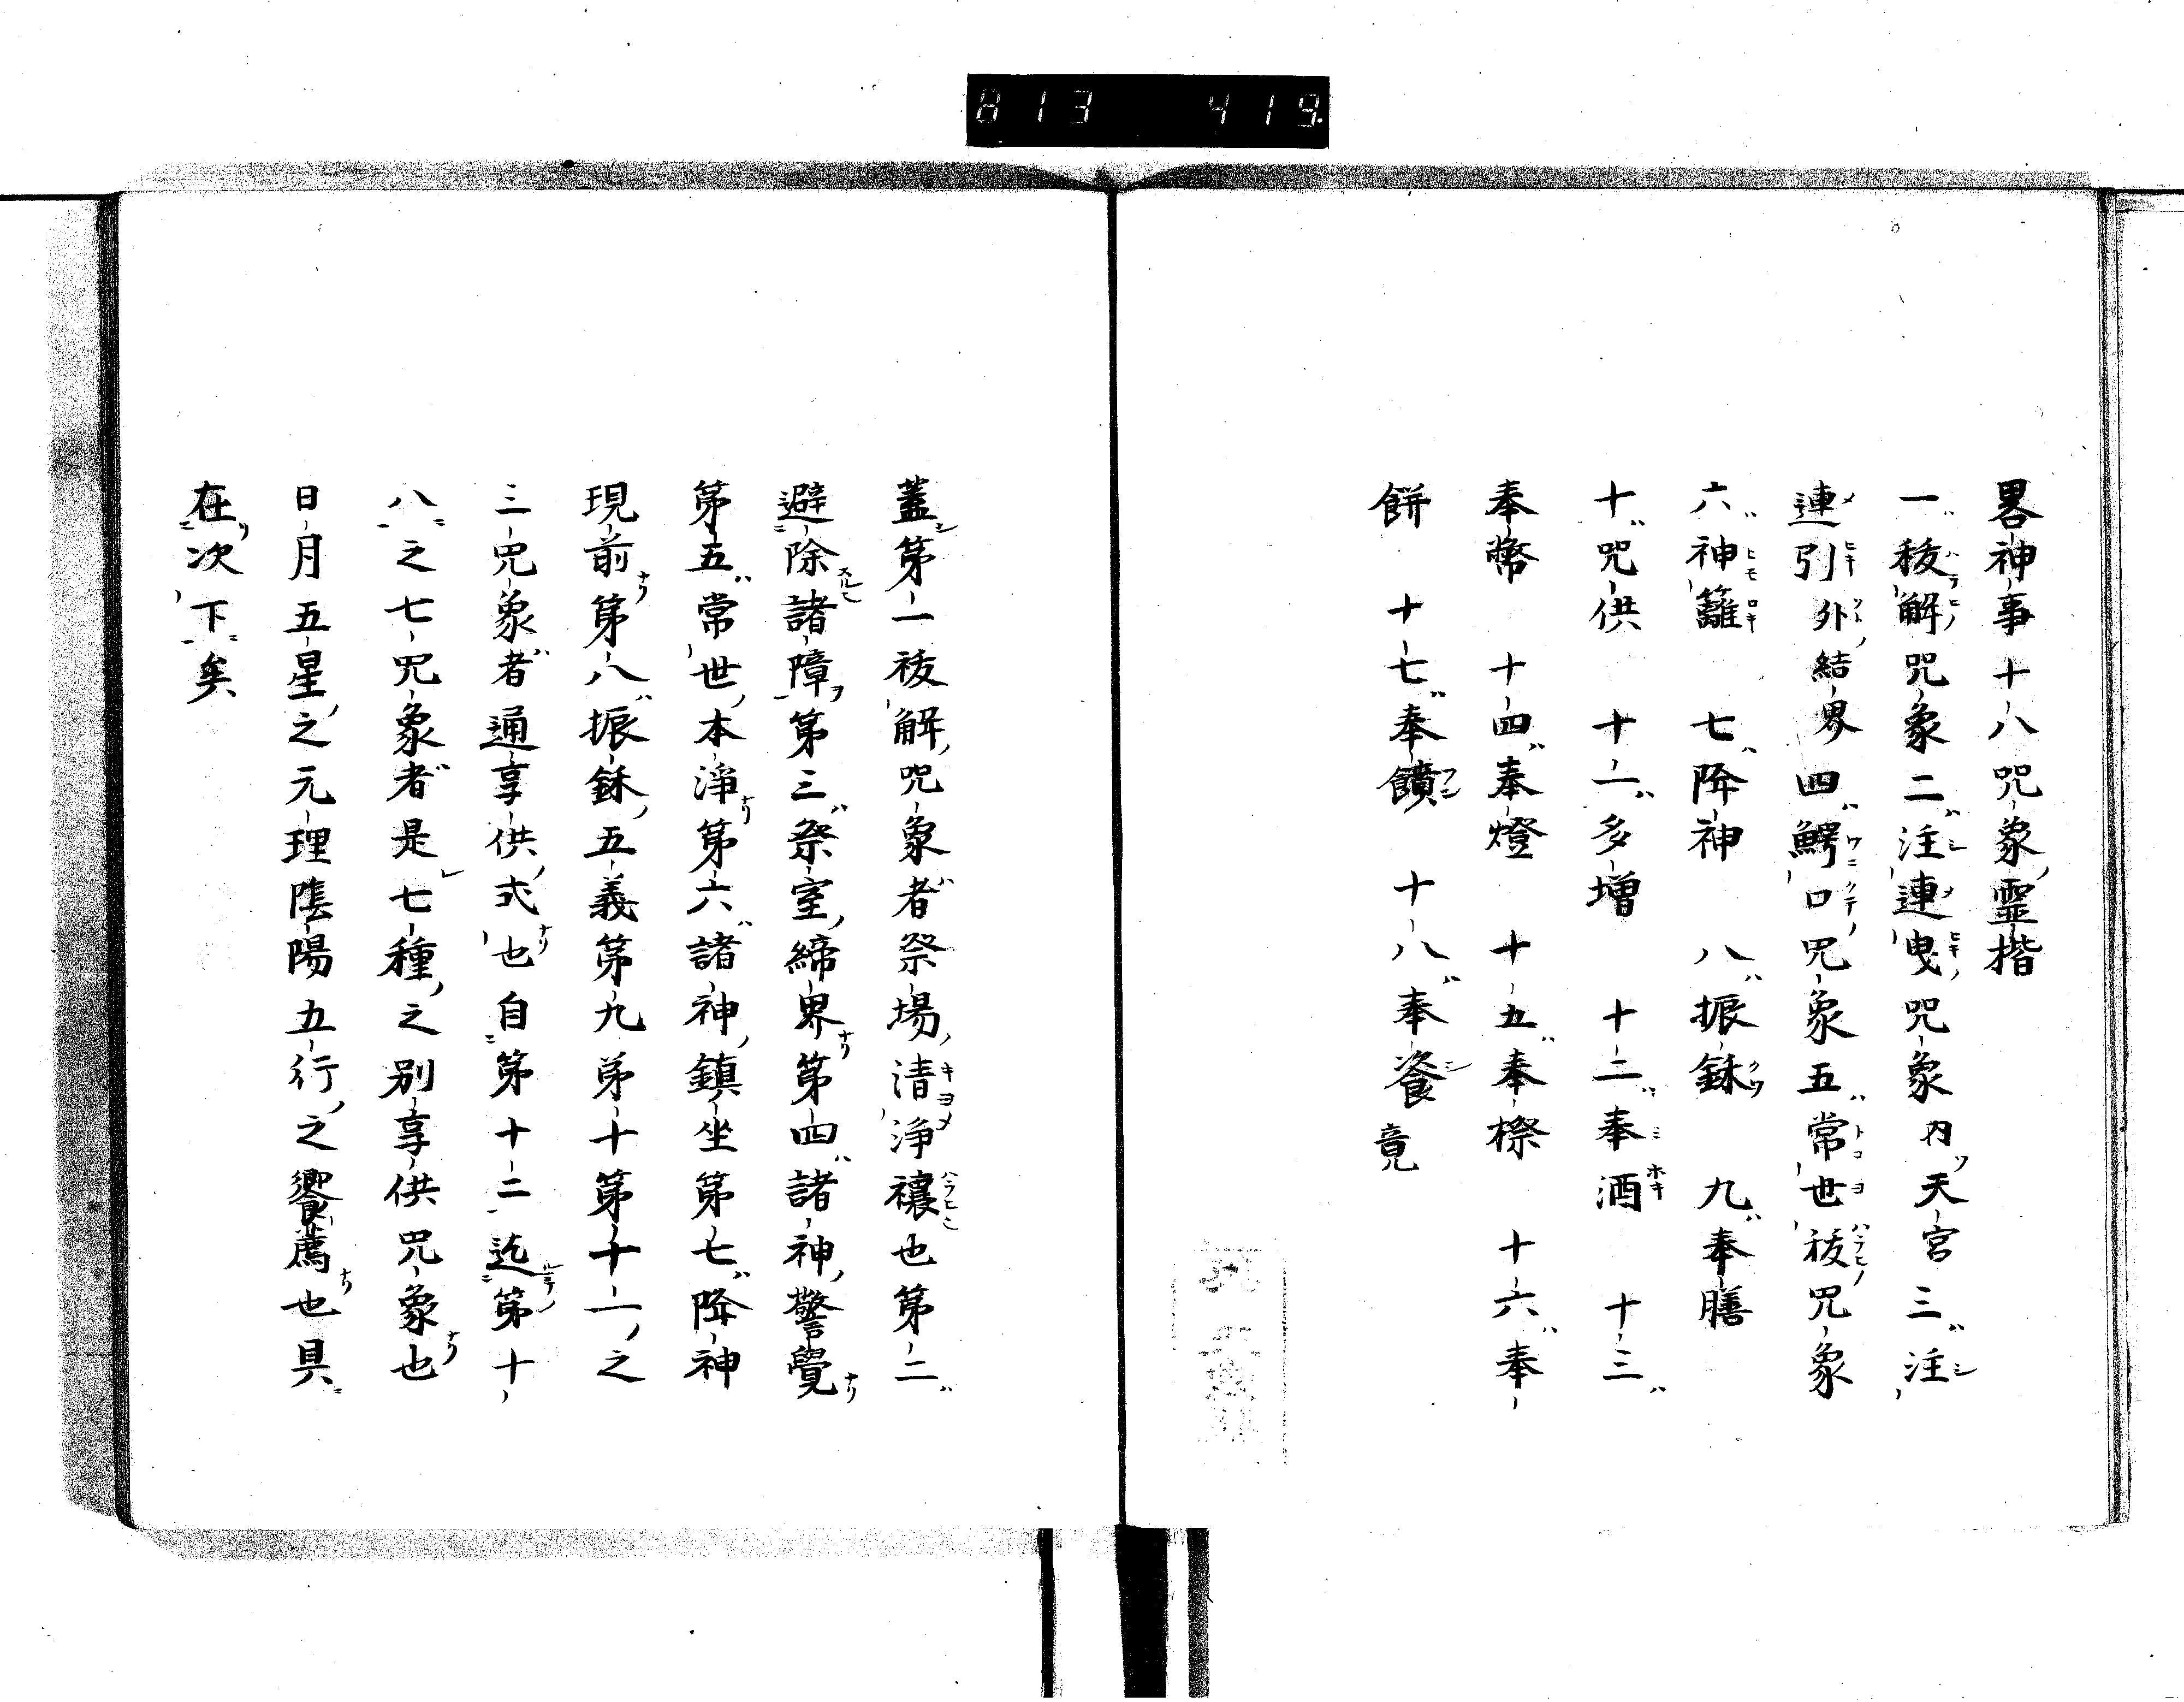 813 419.
畧神事十八咒象霊楷
一祓解咒象二注連曳咒象内天宮三注
連引外結界四鰐口咒象五常世祓咒象
六神籬 七降神 八振鉌 九奉膳
十咒供 十一多増 十二奉酒 十三
奉幣 十四奉燈 十五奉㯫 十六奉
餅 十七奉饙 十八奉餈 竟
蓋第一祓解咒象者祭場清浄禳也第二
避除諸障第三祭室締界第四諸神警覺
第五常世本浄第六諸神鎮坐第七降神
現前第八振鉌五義第九第十第十一之
三咒象者通享供式也自第十二迄第十
八之七咒象者是七種之別享供咒象也
日月五星之元理陰陽五行之饗薦也具
在次下矣